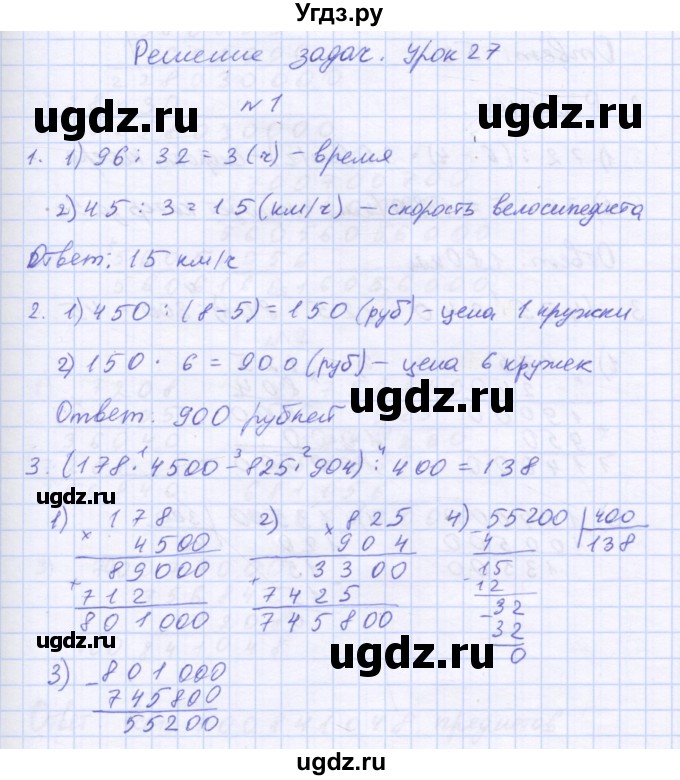 Угдз.ру
Решение задач. Урок 27
ugdz.ru ugdz.ru
№1
1. 1) 96 : 32 = 3 (ч) – время
2) 45 : 3 = 15 (км/ч) – скорость велосипедиста
Ответ: 15 км/ч
2. 1) 450 : (8-5) = 150 (руб) – цена 1 кружки
2) 150 · 6 = 900 (руб) – цена 6 кружек
ugdz.ru
Ответ. 900 рублей
1 3 2 4
3. (178 · 4500 – 825 · 904) : 400 = 138
1) 178 2) 825 4) 55200 400
× 4500 × 904 – 4 138
ugdz.ru
+ 89000 + 3300 15
712 7425 12
801000 745800 – 32
ugdz.ru
32
0
ugdz.ru
3) – 801000
745800
55200
ugdz.ru ugdz.ru